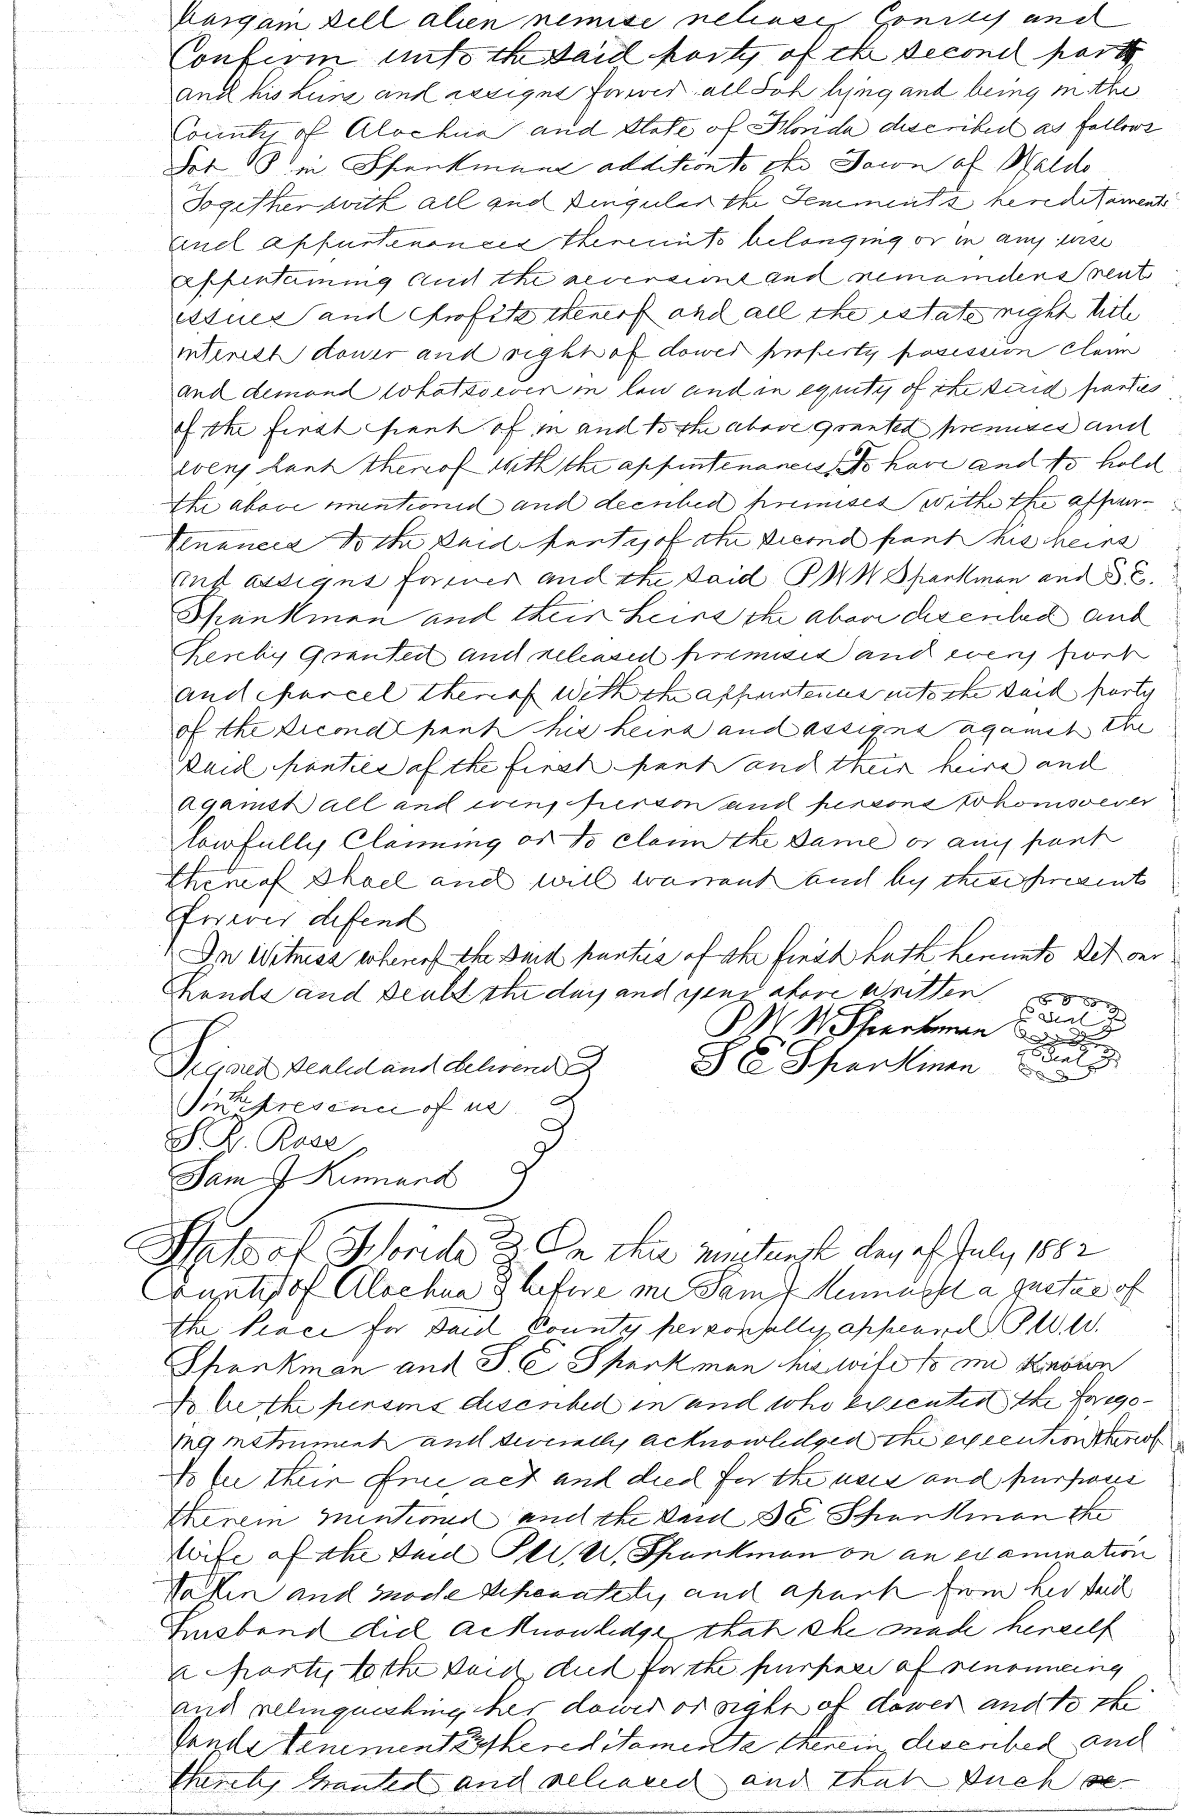 bargain sell alien remise release Convey and
Confirm unto the said party of the second part
and his heirs and assigns forever all Lot lying and being in the
County of Alachua and State of Florida described as follows
Lot 8 in Sparkmans addition to the Town of Waldo
Together with all and singular the Tenements hereditaments
and appurtenances thereunto belonging or in any wise
appertaining and the reversions and remainders rents
issues and profits thereof and all the estate right title
interest dower and right of dower property posession claim
and demand whatsoever in law and in equity of the said parties
of the first part of in and to the above granted premises and
every part thereof with the appurtenances, To have and to hold
the above mentioned and decribed premises withe the appur-
tenances to the said party of the second part his heirs
and assigns forever and the said P W W Sparkman and S. E.
Sparkman and their heirs the above described and
hereby granted and released premises and every part
and parcel thereof with the appurtences unto the said party
of the second part his heirs and assigns against the
said parties of the first part and their heirs and
against all and every person and persons whomsoever
lawfully Claiming or to claim the same or any part
thereof shall and will warrant and by these presents
forever defend
In Witness whereof the said parties of the first hath hereunto set our
hands and seals the day and year above written
P W W Sparkman Seal
S E Sparkman Seal
Signed sealed and delivered
in the presence of us
S. R. Rose
Sam J Kennard
State of Florida On this ninetenth day of July 1882
County of Alachua before me Sam J Kennard a Justice of
the Peace for said County personally appeared P. W. W.
Sparkman and S. E Sparkman his wife to me known
to be the persons described in and who executed the forego-
ing instrument and severally acknowledged the execution thereof
to be their free act and deed for the uses and purposes
therein mentioned and the said S E Sparkman the
wife of the said P W. W. Sparkman on an examination
taken and made separately and apart from her said
husband did acknowledge that she made herself
a party to the said deed for the purpose of renouncing
and relinquishing her dower or right of dower and to the
lands tenements & hereditaments therein described and
thereby granted and released and that such re-